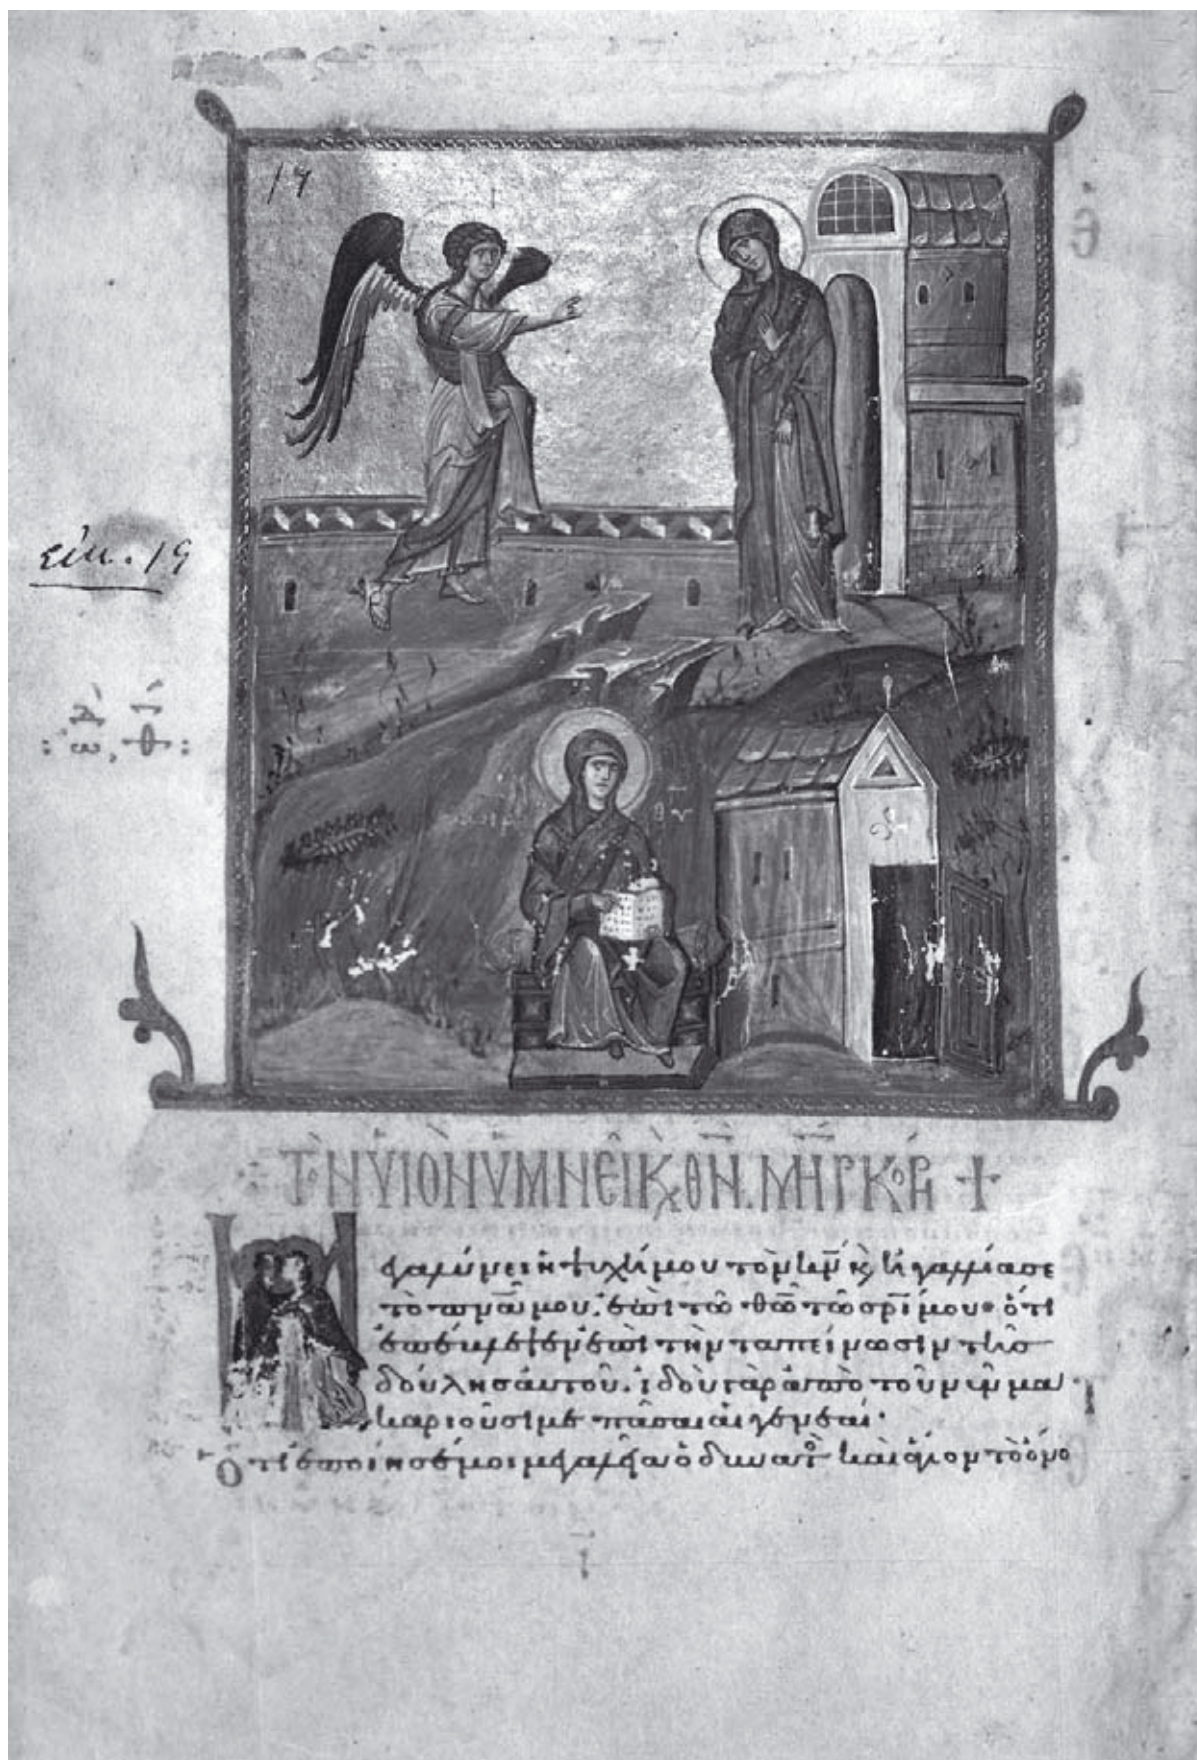 19
εἰκ. 19
ΘΥ
ΤῸΝ ΥἹῸΝ ὙΜΝΕῖ Κ, ΘΝ. ΜΗΡ ΚΌΡΗ +
Μεγαλύνει ἡ ψυχή μου τὸν κν κ, ἠγαλλίασε
τὸ πνα μου. ἐπὶ τῶ θῶ τῶ σρι μου· ὅτι
ἐπέβλεψεν ἐπὶ τὴν ταπείνωσιν τῆς
δούλης ἀυτοῦ. ἰδοὺ γὰρ ἀπὸ τοῦ νῦν μα
καριοῦσί με πᾶσαι ἁι γενεαί·
Ὅτι ἐποίησέ μοι μεγαλεῖα ὁ δυνατὸ καὶ ἅγιον τὸ ὄνο